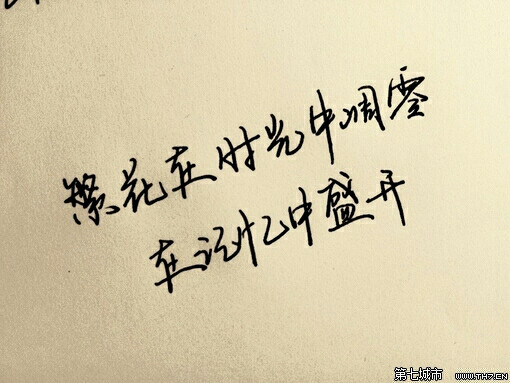 繁花在时光中凋零
在记忆中盛开
第七城市 WWW.TH7.CN